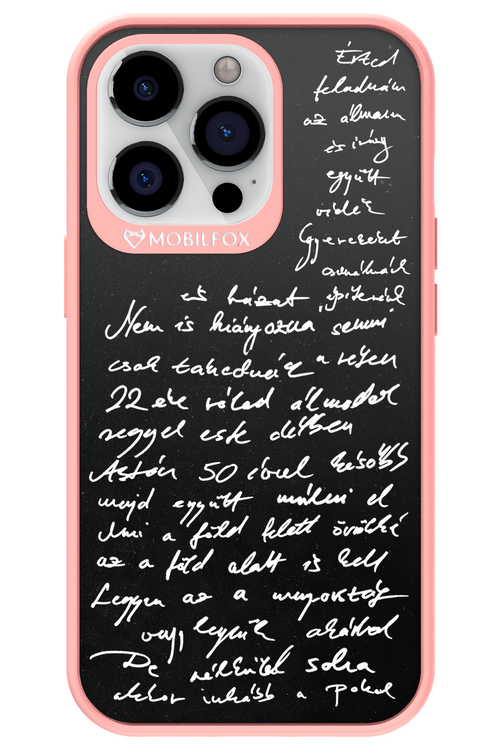 Érted
feladnám
az álmaim
és így
együtt
vidék
Gyerekeket
csinálnánk
és házat építenénk
Nem is hiányozna semmi
csak takednéz a réten
22 éve rólad álmodok
reggel este délben
Aztán 50 évvel később
majd együtt múlni el
Ami a föld felett örökké
az a föld alatt is kell
Legyen az a mennyország
vagy legyünk akárhol
De nélküled soha
akkor inkább a Pokol
MOBILFOX